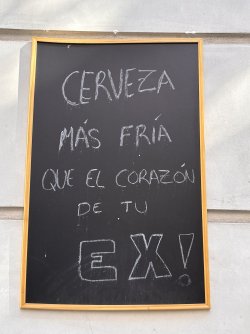 CERVEZA
MÁS FRÍA
QUE EL CORAZÓN
DE TU
EX!